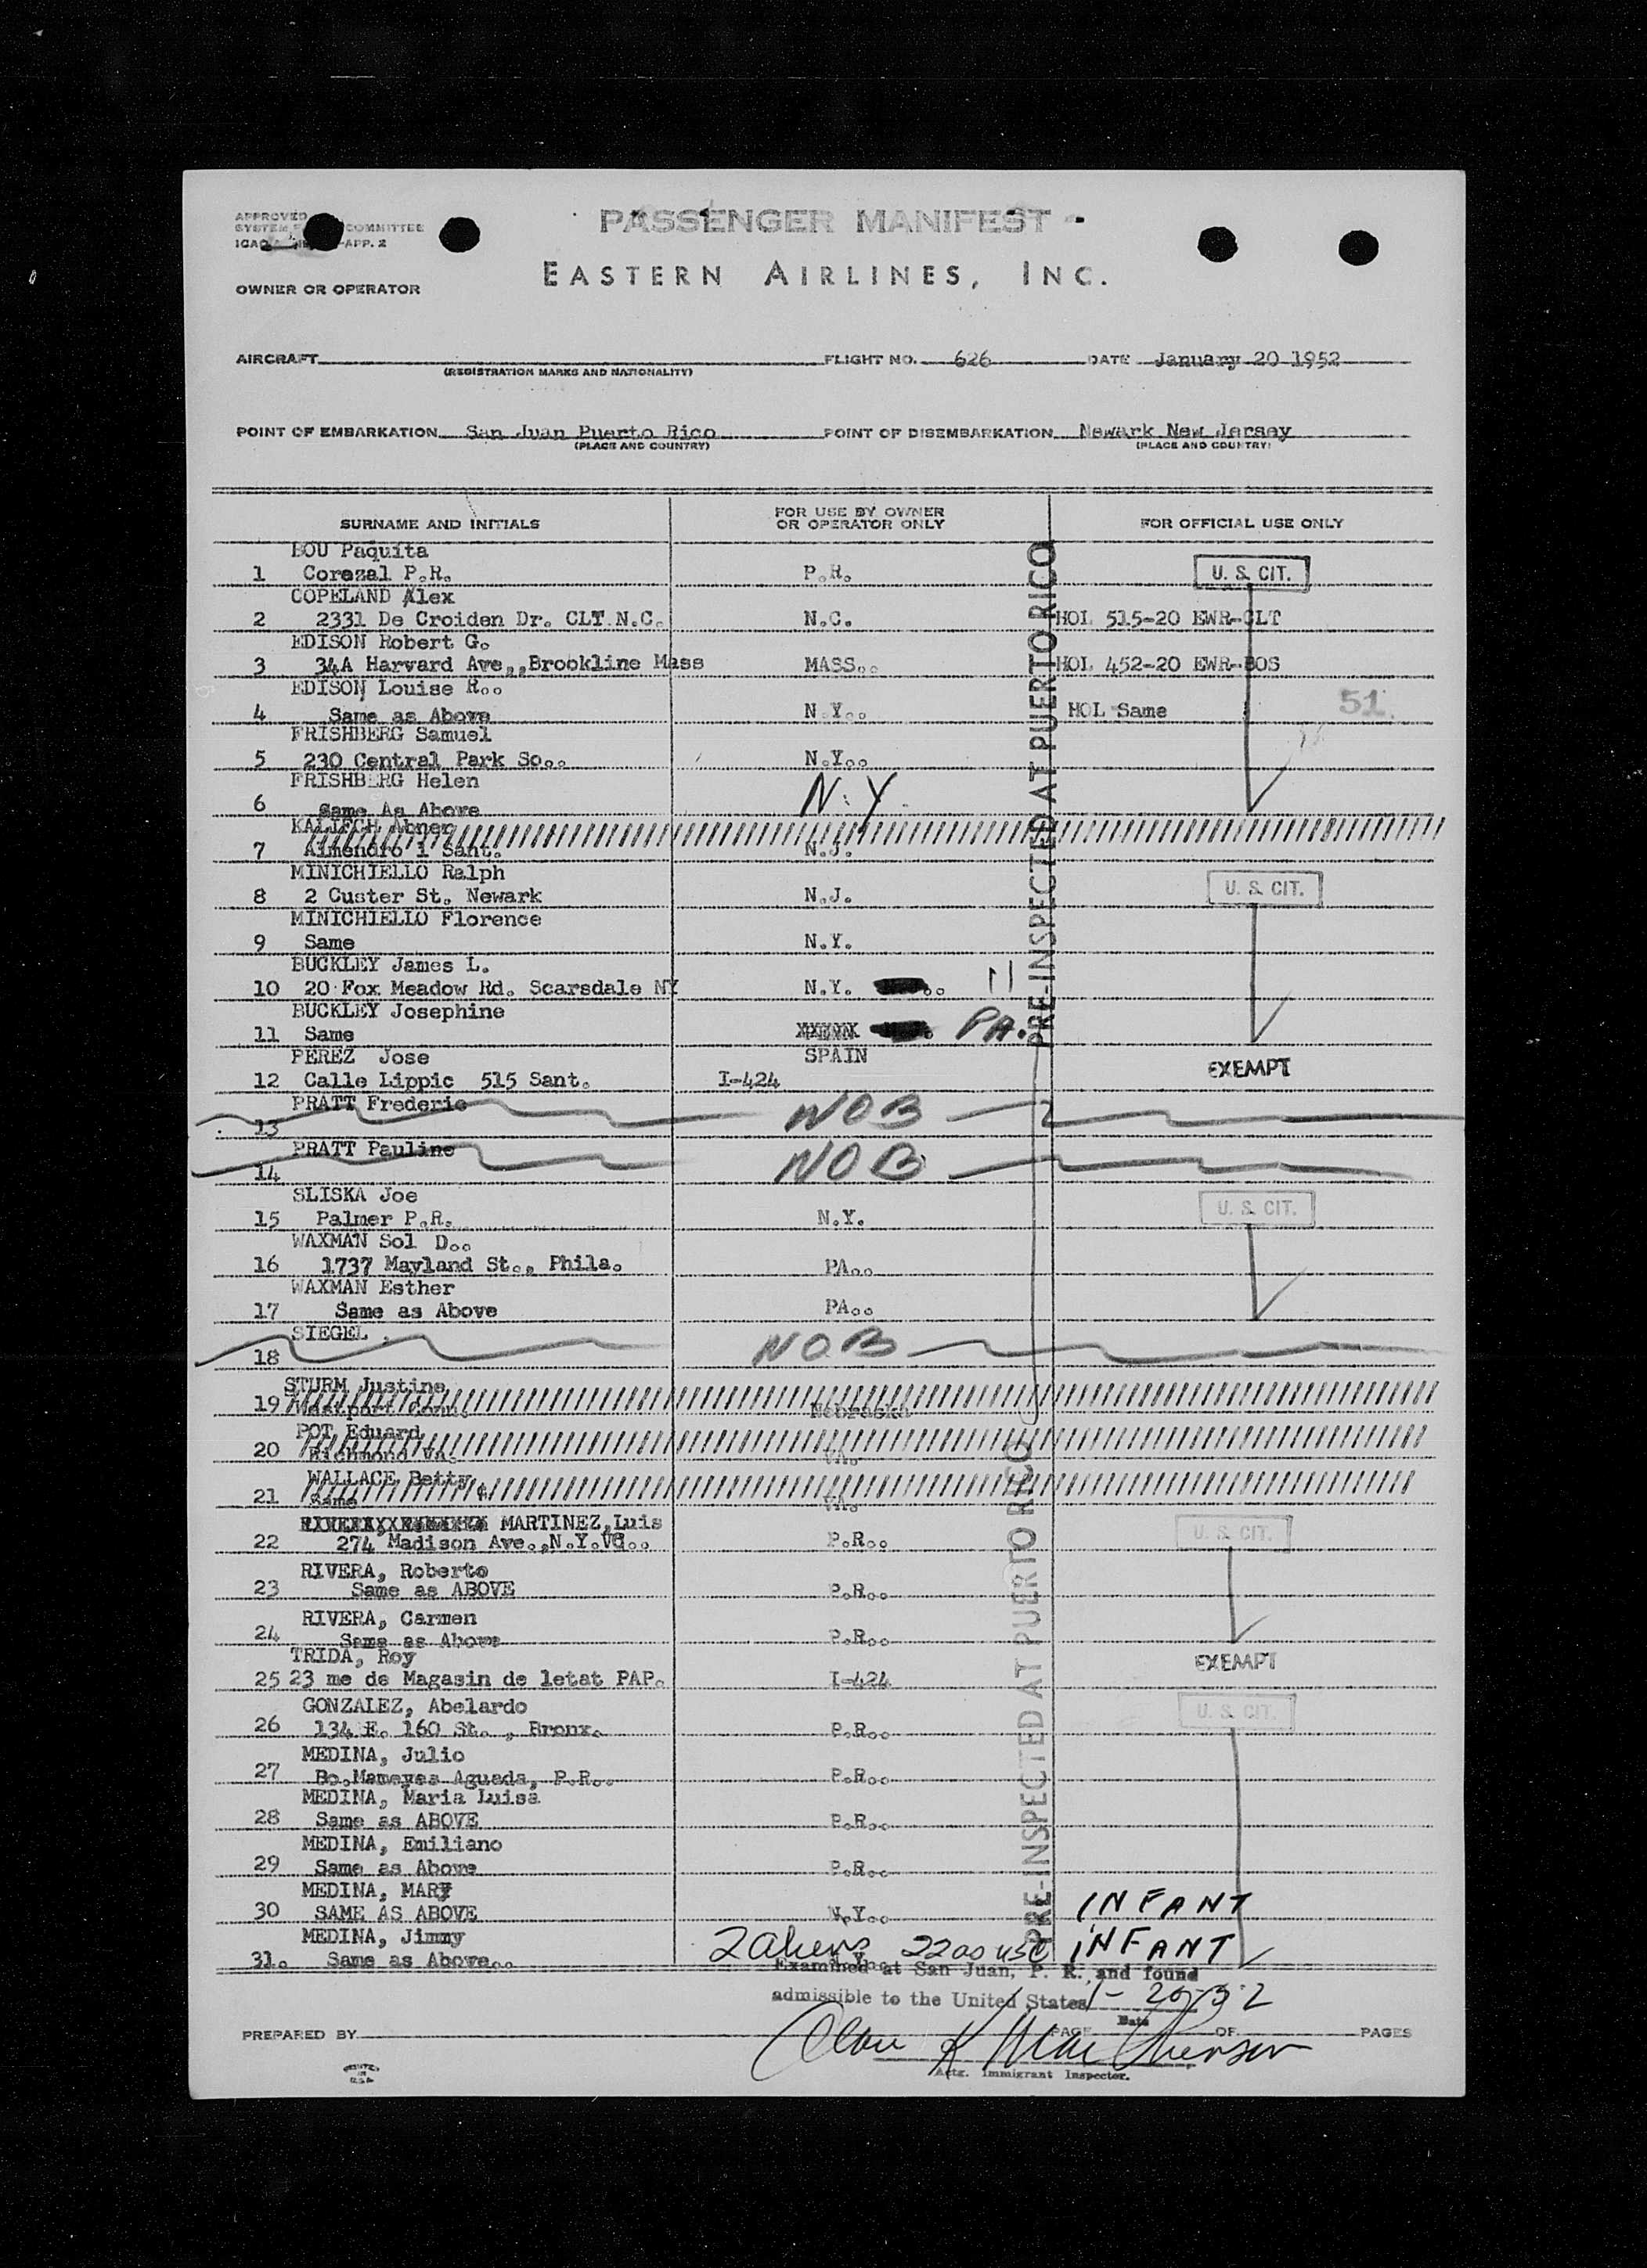 APPROVED
SYSTEM COMMITTEE
ICAO APP. 2
PASSENGER MANIFEST
EASTERN AIRLINES, INC.
OWNER OR OPERATOR
AIRCRAFT FLIGHT NO. 626 DATE January 20 1952
(REGISTRATION MARKS AND NATIONALITY)
POINT OF EMBARKATION San Juan Puerto Rico POINT OF DISEMBARKATION Newark New Jersey
(PLACE AND COUNTRY) (PLACE AND COUNTRY)
SURNAME AND INITIALS FOR USE BY OWNER OR OPERATOR ONLY FOR OFFICIAL USE ONLY
BOU Paquita
1 Corozal P.R. P.R. U. S. CIT.
COPELAND Alex
2 2331 De Croiden Dr. CLT.N.C. N.C. HOL 515-20 EWR-CLT
EDISON Robert G.
3 34A Harvard Ave.,,Brookline Mass MASS.. HOL 452-20 EWR-BOS
EDISON Louise R..
4 Same as Above N.Y.. HOL Same 51
FRISHBERG Samuel
5 230 Central Park So.. N.Y..
FRISHBERG Helen
6 Same As Above N.Y.
KALISCH Abner
7 Almendro 1 Sant. N.J.
MINICHIELLO Ralph
8 2 Custer St. Newark N.J. U. S. CIT.
MINICHIELLO Florence
9 Same N.Y.
BUCKLEY James L.
10 20 Fox Meadow Rd. Scarsdale NY N.Y. 11
BUCKLEY Josephine
11 Same PA.
PEREZ Jose SPAIN
12 Calle Lippic 515 Sant. I-424 EXEMPT
PRATT Frederic NOB
13
PRATT Pauline NOB
14
SLISKA Joe
15 Palmer P.R. N.Y. U. S. CIT.
WAXMAN Sol D..
16 1737 Mayland St.., Phila. PA..
WAXMAN Esther
17 Same as Above PA..
SIEGEL NOB
18
STURM Justine
19 Westport Conn. Nebraska
POT Eduard
20 Richmond Va. VA.
WALLACE, Betty
21 Same VA.
MARTINEZ,Luis
22 274 Madison Ave.,N.Y. P.R.. U. S. CIT.
RIVERA, Roberto
23 Same as ABOVE P.R..
RIVERA, Carmen
24 Same as Above P.R..
TRIDA, Roy
25 23 me de Magasin de letat PAP. I-424 EXEMPT
GONZALEZ, Abelardo
26 134 E. 160 St. , Bronx. P.R.. U. S. CIT.
MEDINA, Julio
27 Bo.Mameyes Aguada, P.R.. P.R..
MEDINA, Maria Luisa
28 Same as ABOVE P.R..
MEDINA, Emiliano
29 Same as Above P.R..
MEDINA, MARY
30 SAME AS ABOVE N.Y.. INFANT
MEDINA, Jimmy
31. Same as Above.. 2 aliens 22 as usc INFANT
PRE-INSPECTED AT PUERTO RICO
PRE-INSPECTED AT PUERTO RICO
Examined at San Juan, P. R. and found
admissible to the United States 1-20-52
Date
PREPARED BY PAGE OF PAGES
Actg. Immigrant Inspector.
PRINTED
IN
U.S.A.